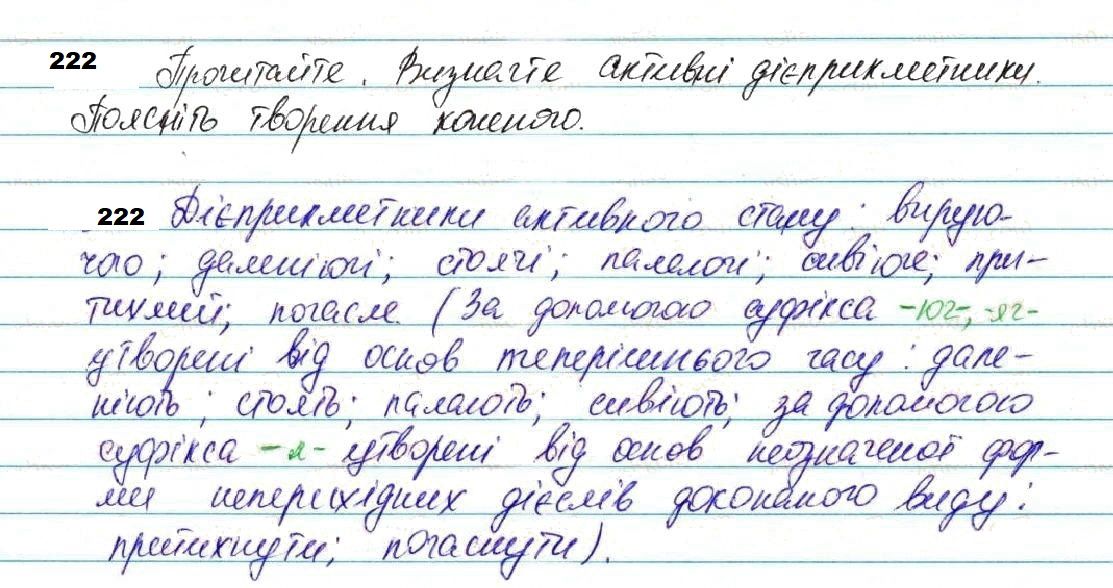 222 Прочитайте. Визначте активні дієприкметники.
Поясніть творення кожного.
222 Дієприкметники активного стану: вирую-
чого; даленіючі; стоячі; палаючі; сивіюче; при-
тихлий; погасле. (За допомогою суфікса -юч-, -яч-
утворені від основ теперішнього часу: дале-
ніють; стоять; палають; сивіють; за допомогою
суфікса -л- утворені від основ неозначеної фор-
ми неперехідних дієслів доконаного виду:
притихнути; погаснути).